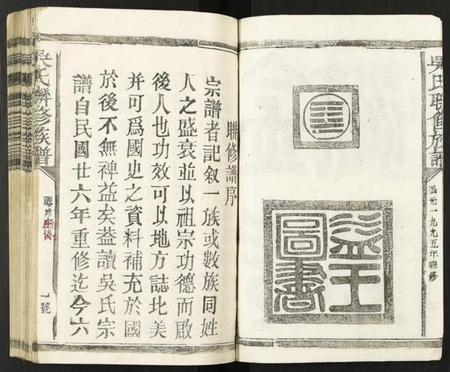 吳氏聯修族譜
公元一九九五年聯修
益王
圖書
聯修譜序
宗譜者記叙一族或數族同姓
人之盛衰並以祖宗功德而啟
後人也功效可以地方誌比美
並可爲國史之資料補充於國
於後不無裨益矣益讀吳氏宗
譜自民國廿六年重修迄今六
吳氏聯修族譜
號